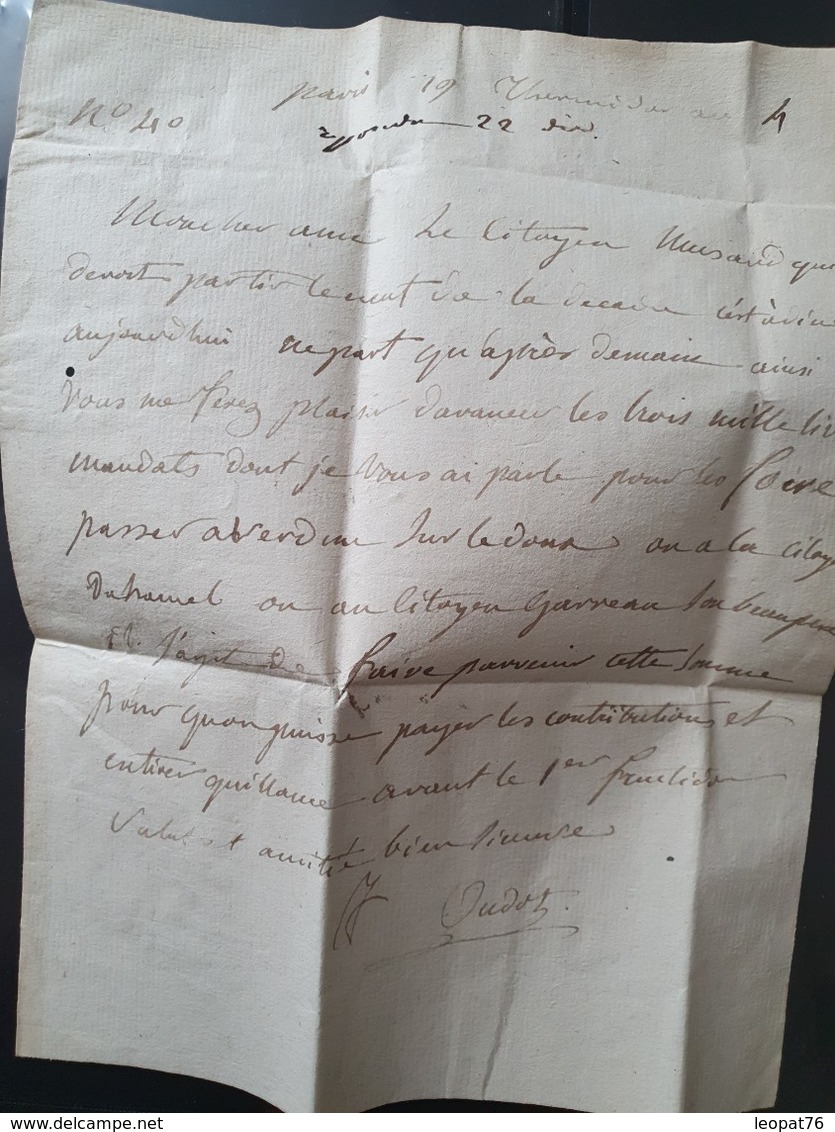 paris 19 Thermidor an 4
No 40
repondu 22 dud.
Mon cher ami Le Citoyen Musard qui
devoit partir le nuit de la decade c'est à dire
aujourdhui ne part qu'après demain ainsi
Vous me ferez plaisir d'avancer les trois mille liv
mandats dont je Vous ai parlé pour les faire
passer a Verdun Sur le doux ou a la citoy
Duhamel ou au Citoyen Garreau Son beaupere
il s'agit de faire parvenir cette Somme
pour quon puisse payer les contributions et
entirer quillance avant le 1er fructidor
Salut et amitié bien Sincere
Oudot.
leopat76